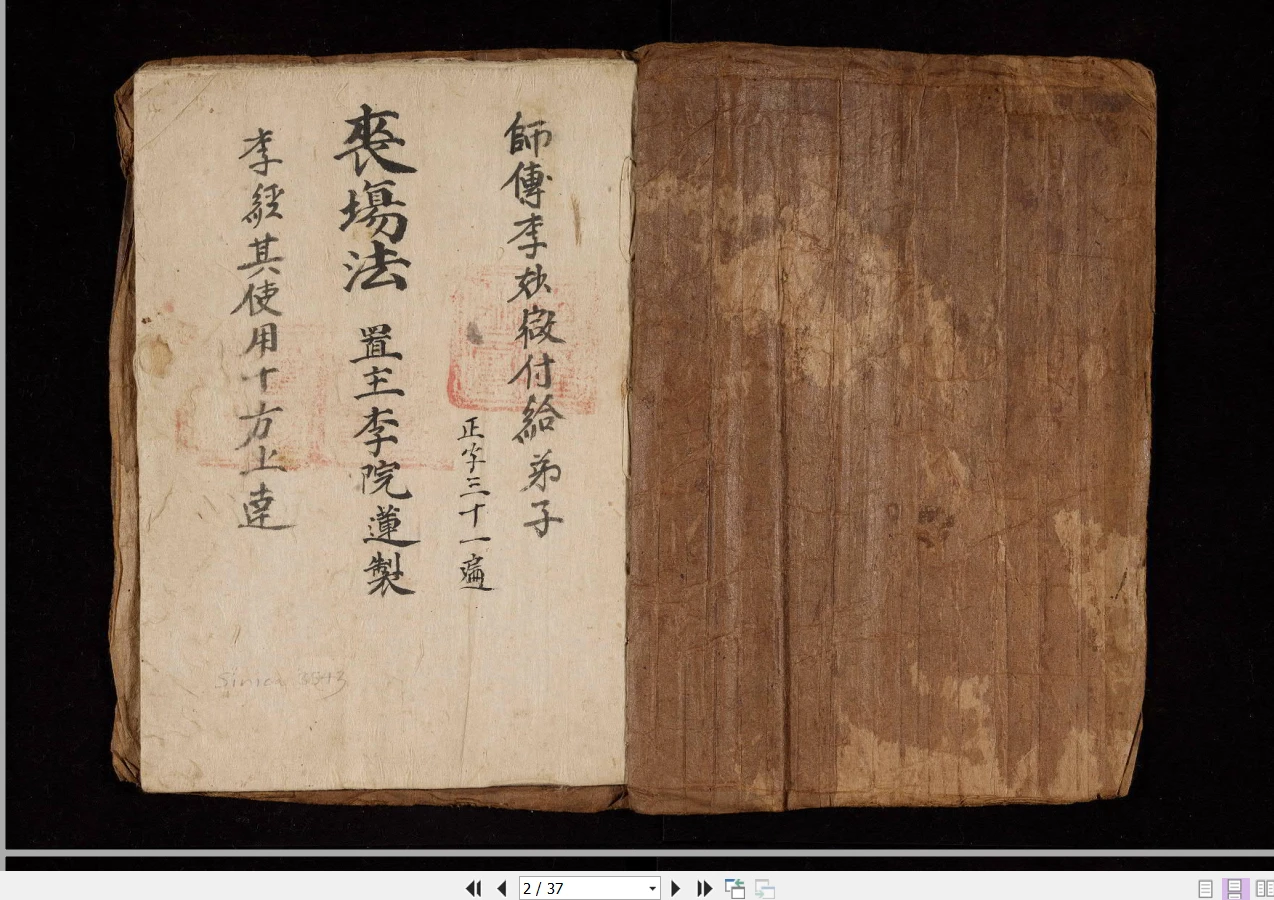 師傳李妙㣲付給弟子
正字三十一遍
喪塲法 置主李院蓮製
李經其使用十方上達
Sinica 3543
2 / 37